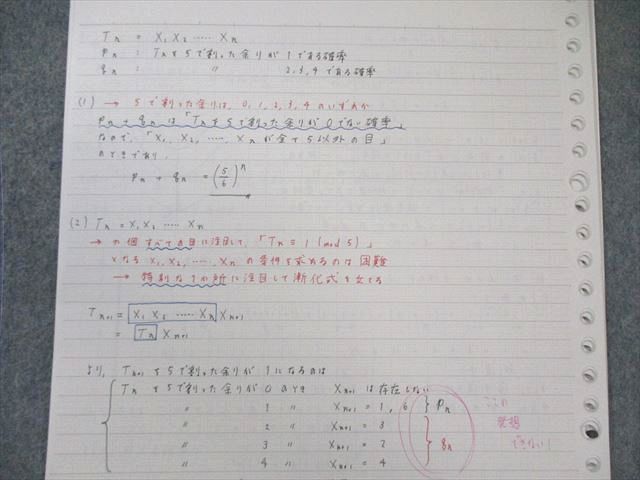 Tn = X1 X2 …… Xn
Pn : Tnを5で割った余りが1である確率
qn : 〃 2,3,4である確率
(1) → 5で割った余りは、0,1,2,3,4のいずれか
Pn + qn は「Tnを5で割った余りが0でない確率」
なので、「X1, X2, ……, Xnが全て5以外の目」
のときであり、
Pn + qn = (5/6)^n
(2) Tn = X1 X2 …… Xn
→ n個すべての目に注目して、「Tn ≡ 1 (mod 5)」
となる X1, X2, ……, Xn の条件を求めるのは困難
→ 特別な1か所に注目して漸化式を立てる
Tn+1 = X1 X2 …… Xn Xn+1
= Tn Xn+1
より、Tn+1を5で割った余りが1になるのは
Tnを5で割った余りが0のとき Xn+1は存在しない
〃 1 〃 Xn+1 = 1, 6 } Pn
〃 2 〃 Xn+1 = 3
〃 3 〃 Xn+1 = 2 } qn
〃 4 〃 Xn+1 = 4
ここの
発想
できない!